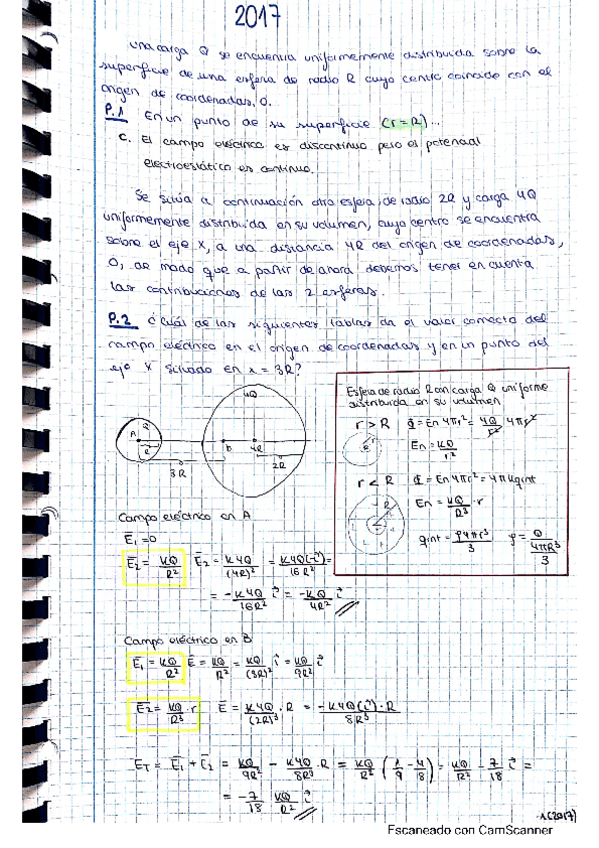 2017
Una carga Q se encuentra uniformemente distribuida sobre la
superficie de una esfera de radio R cuyo centro coincide con el
origen de coordenadas, O.
P.1 En un punto de su superficie (r=R)...
c. El campo eléctrico es discontinuo pero el potencial
electroestático es continuo.
Se sitúa a continuación otra esfera, de radio 2R y carga 4Q
uniformemente distribuida en su volumen, cuyo centro se encuentra
sobre el eje X, a una distancia 4R del origen de coordenadas,
O, de modo que a partir de ahora debemos tener en cuenta
las contribuciones de las 2 esferas.
P.2 ¿Cuál de las siguientes tablas da el valor correcto del
campo eléctrico en el origen de coordenadas y en un punto del
eje X situado en x = 3R?
4Q
A
R
b
4R
2R
3R
Esfera de radio R con carga Q uniforme
distribuida en su volumen
r > R
En = KQ/r²
r < R Φ = En 4πr² = 4πKqint
En = KQ/R³ · r
qint = ρ4πr³/3 ρ = Q/(4πR³/3)
Campo eléctrico en A
E₁ = 0
E₂ = KQ/R² E₂ = K4Q/(4R)² = K4Q(-i)/16R² =
= -K4Q/16R² i = -KQ/4R² i
Campo eléctrico en B
E₁ = KQ/R² E = KQ/R² = KQ/(3R)² i = KQ/9R² i
E₂ = KQ/R³ · r E = K4Q/(2R)³ · R = -K4Q(i)·R/8R³
ET = E₁ + E₂ = KQ/9R² - K4Q/8R³ · R = KQ/R² (1/9 - 4/8) = KQ/R² - 7/18 i =
= -7/18 KQ/R² i
1(2017)
Escaneado con CamScanner